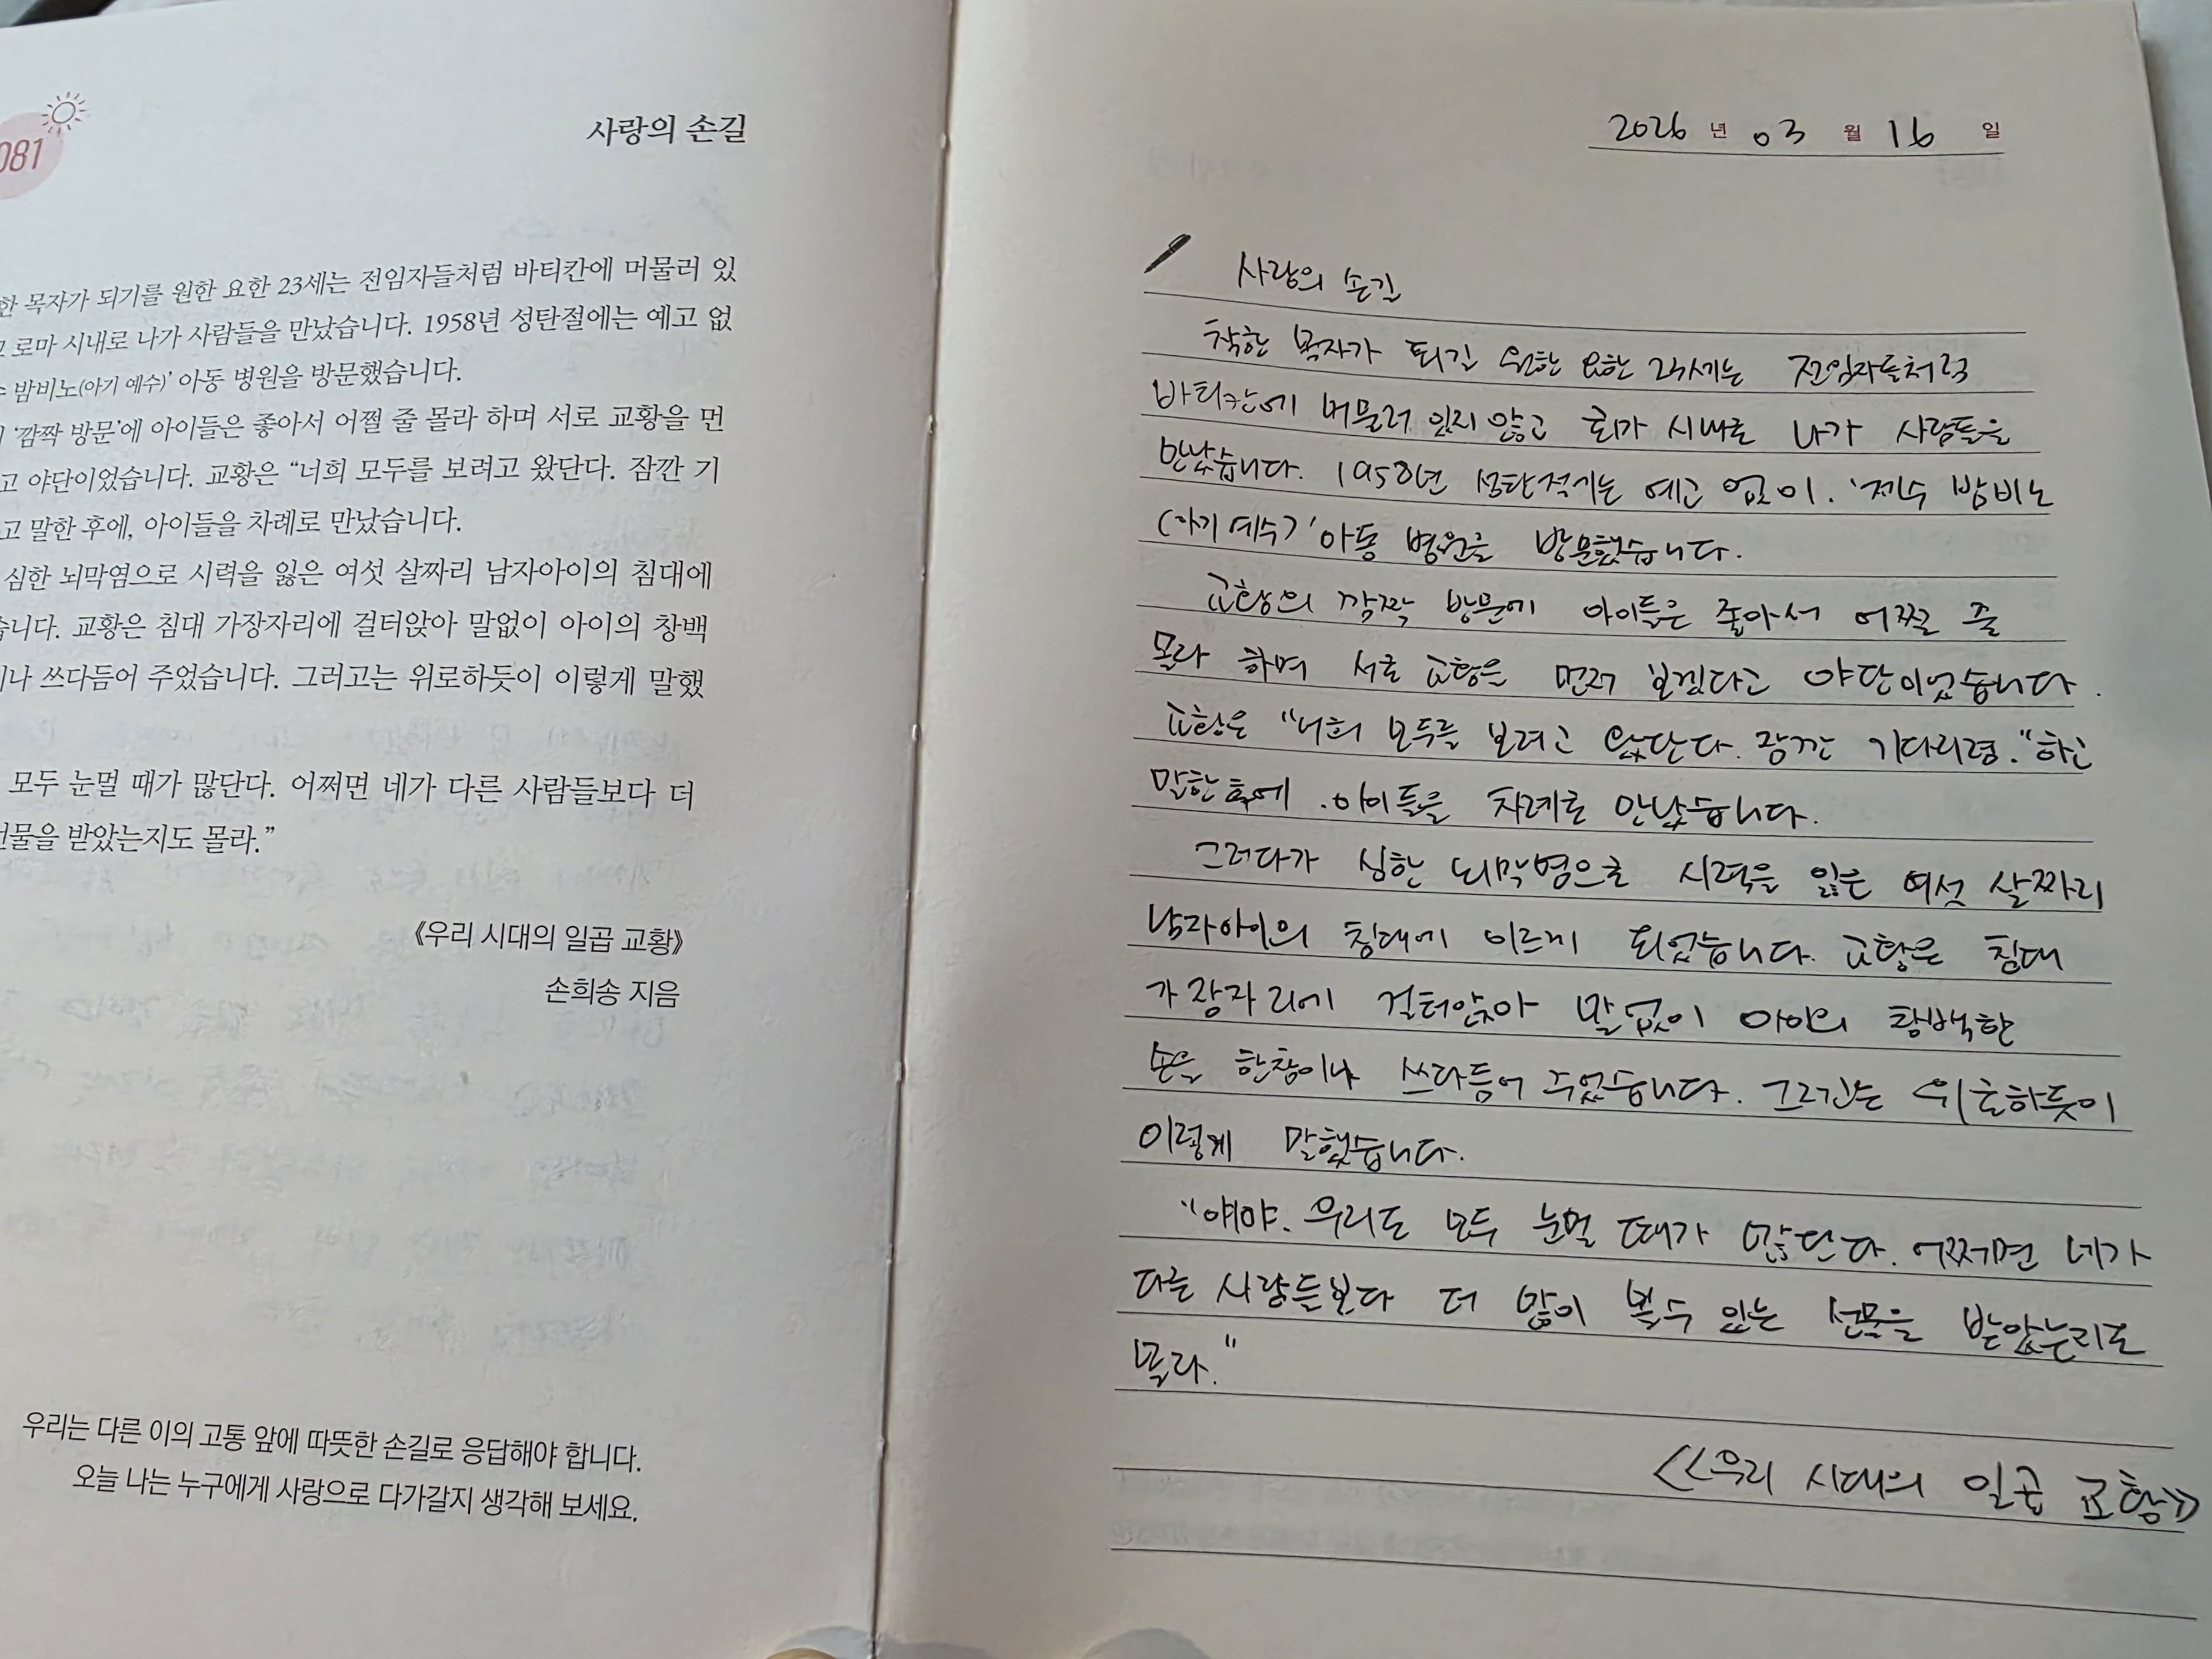 081
사랑의 손길
한 목자가 되기를 원한 요한 23세는 전임자들처럼 바티칸에 머물러 있
로마 시내로 나가 사람들을 만났습니다. 1958년 성탄절에는 예고 없
밤비노(아기 예수)’ 아동 병원을 방문했습니다.
‘깜짝 방문’에 아이들은 좋아서 어쩔 줄 몰라 하며 서로 교황을 먼
고 야단이었습니다. 교황은 “너희 모두를 보려고 왔단다. 잠깐 기
고 말한 후에, 아이들을 차례로 만났습니다.
심한 뇌막염으로 시력을 잃은 여섯 살짜리 남자아이의 침대에
습니다. 교황은 침대 가장자리에 걸터앉아 말없이 아이의 창백
이나 쓰다듬어 주었습니다. 그러고는 위로하듯이 이렇게 말했
모두 눈멀 때가 많단다. 어쩌면 네가 다른 사람들보다 더
선물을 받았는지도 몰라.”
《우리 시대의 일곱 교황》
손희송 지음
우리는 다른 이의 고통 앞에 따뜻한 손길로 응답해야 합니다.
오늘 나는 누구에게 사랑으로 다가갈지 생각해 보세요.
2026 년 03 월 16 일
사랑의 손길
착한 목자가 되길 원한 요한 23세는 전임자들처럼
바티칸에 머물러 있지 않고 로마 시내로 나가 사람들을
만났습니다. 1958년 성탄절에는 예고 없이. ‘제수 밤비노
(아기 예수)’ 아동 병원을 방문했습니다.
교황의 깜짝 방문에 아이들은 좋아서 어쩔 줄
몰라 하며 서로 교황을 먼저 보겠다고 야단이었습니다.
교황은 “너희 모두를 보려고 왔단다. 잠깐 기다리렴.” 하고
말한 후에. 아이들을 차례로 만났습니다.
그러다가 심한 뇌막염으로 시력을 잃은 여섯 살짜리
남자아이의 침대에 이르게 되었습니다. 교황은 침대
가장자리에 걸터앉아 말없이 아이의 창백한
손을 한참이나 쓰다듬어 주었습니다. 그러고는 위로하듯이
이렇게 말했습니다.
“얘야. 우리도 모두 눈멀 때가 많단다. 어쩌면 네가
다른 사람들보다 더 많이 볼수 있는 선물을 받았는지도
몰라.”
<<우리 시대의 일곱 교황>>